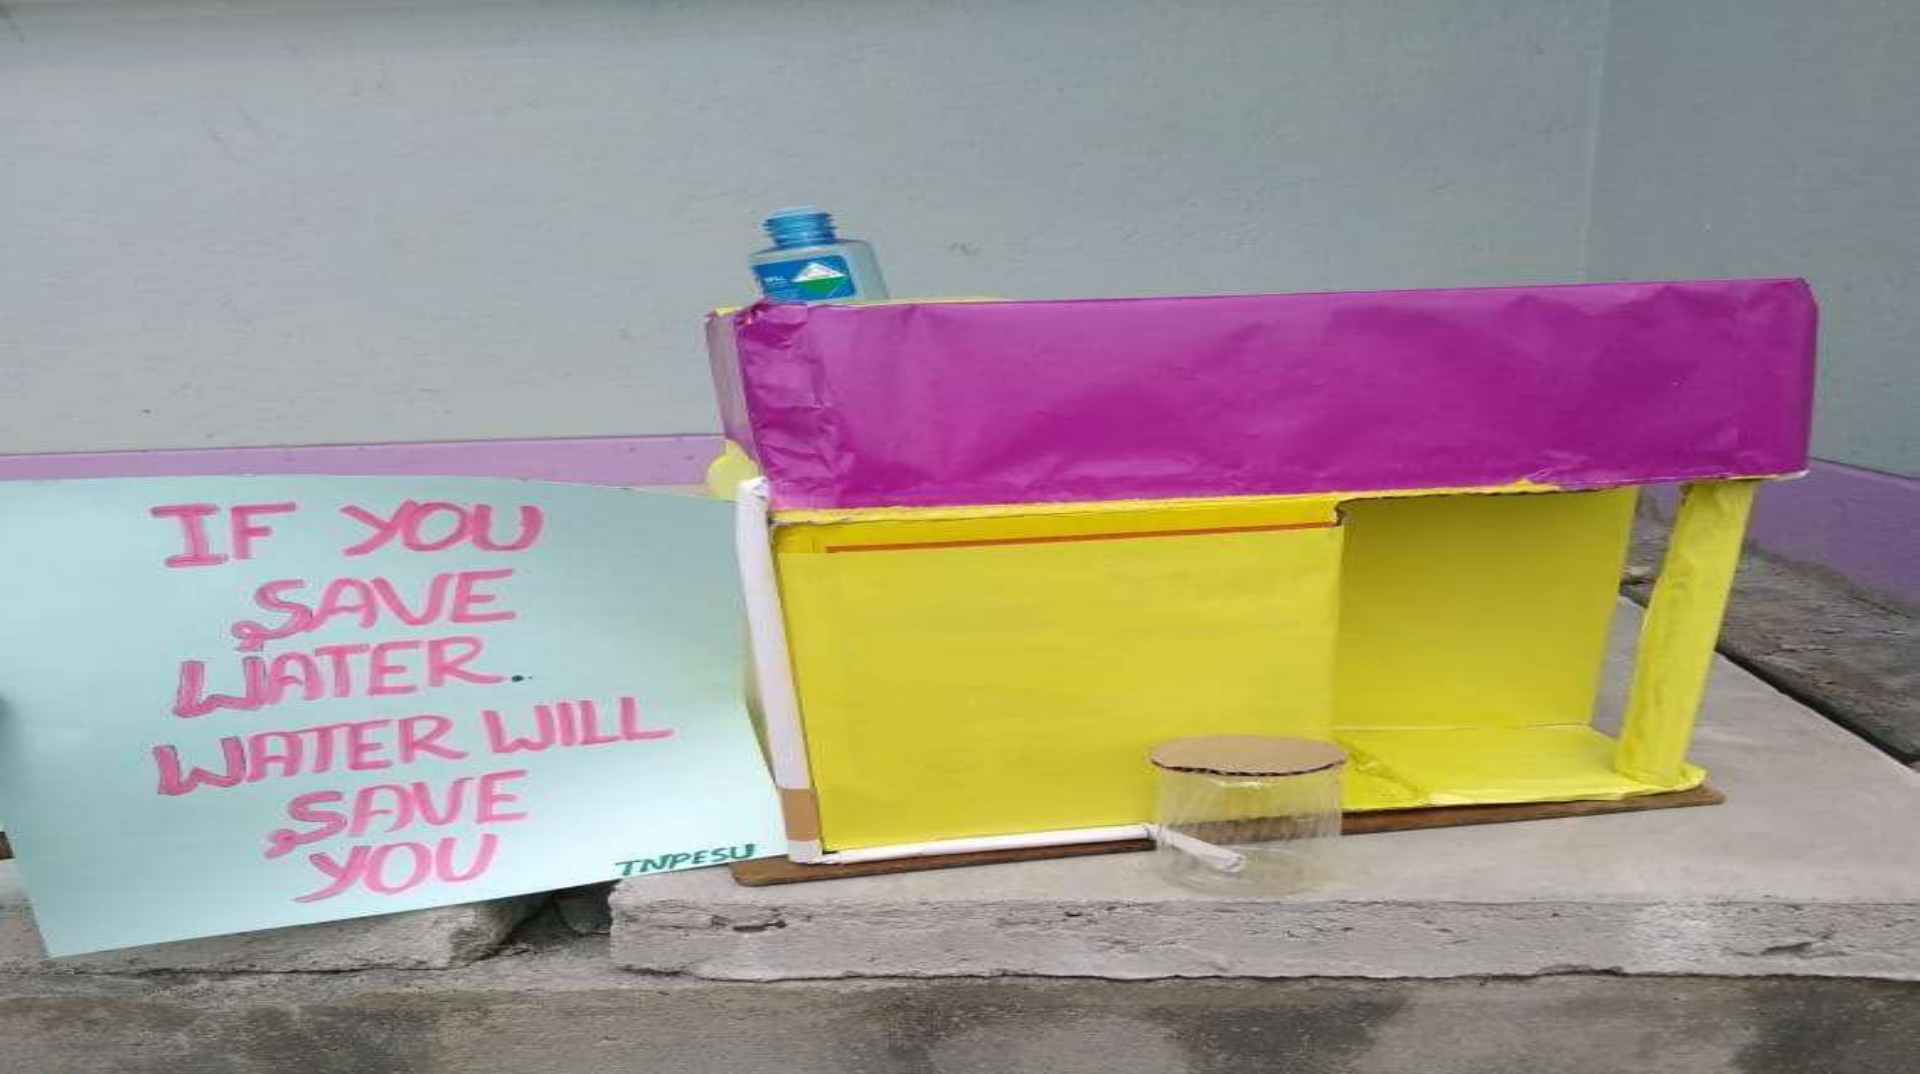 IF YOU
SAVE
WATER.
WATER WILL
SAVE
YOU
TNPESU